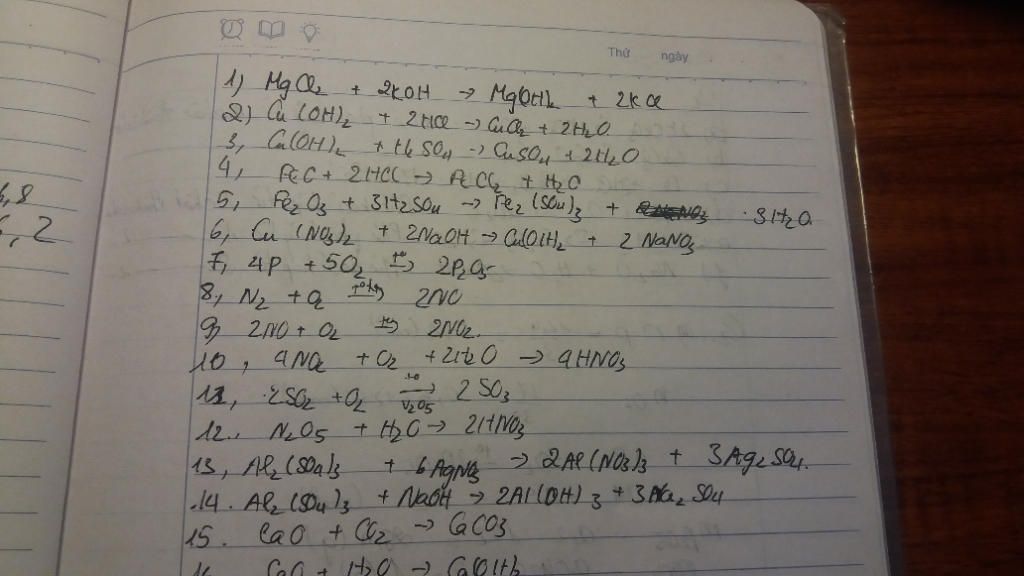 Thứ ngày
1) MgCl₂ + 2KOH → Mg(OH)₂ + 2KCl
2) Cu(OH)₂ + 2HCl → CuCl₂ + 2H₂O
3, Cu(OH)₂ + H₂SO₄ → CuSO₄ + 2H₂O
4, FeO + 2HCl → FeCl₂ + H₂O
5, Fe₂O₃ + 3H₂SO₄ → Fe₂(SO₄)₃ + 3H₂O
6, Cu(NO₃)₂ + 2NaOH → Cu(OH)₂ + 2NaNO₃
7, 4P + 5O₂ →(t°) 2P₂O₅
8, N₂ + O₂ → 2NO
9, 2NO + O₂ → 2NO₂.
10, 4NO₂ + O₂ + 2H₂O → 4HNO₃
11, 2SO₂ + O₂ →(t°, V₂O₅) 2SO₃
12.. N₂O₅ + H₂O → 2HNO₃
13, Al₂(SO₄)₃ + 6AgNO₃ → 2Al(NO₃)₃ + 3Ag₂SO₄.
14. Al₂(SO₄)₃ + NaOH → 2Al(OH)₃ + 3Na₂SO₄
15. CaO + CO₂ → CaCO₃
16 CaO + H₂O → Ca(OH)₂
6,8
, 2